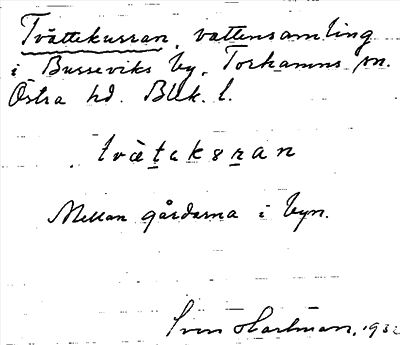 Tvättekusran, vattensamling
i Busseviks by, Torhamns sn.
Östra hd. Blek. l.
tväteksran
Mellan gårdarna i byn.
Sven Hartman, 193